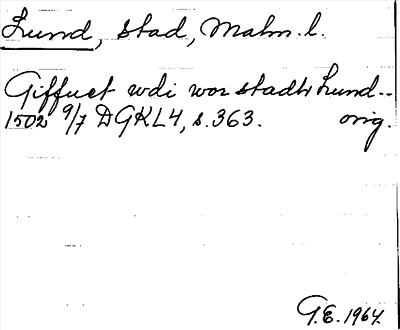 Lund, stad, Malm. l.
Giffuet wdi wor stadtz Lund..
1502 9/7 DGKL4, s. 363. orig.
G.E. 1964.